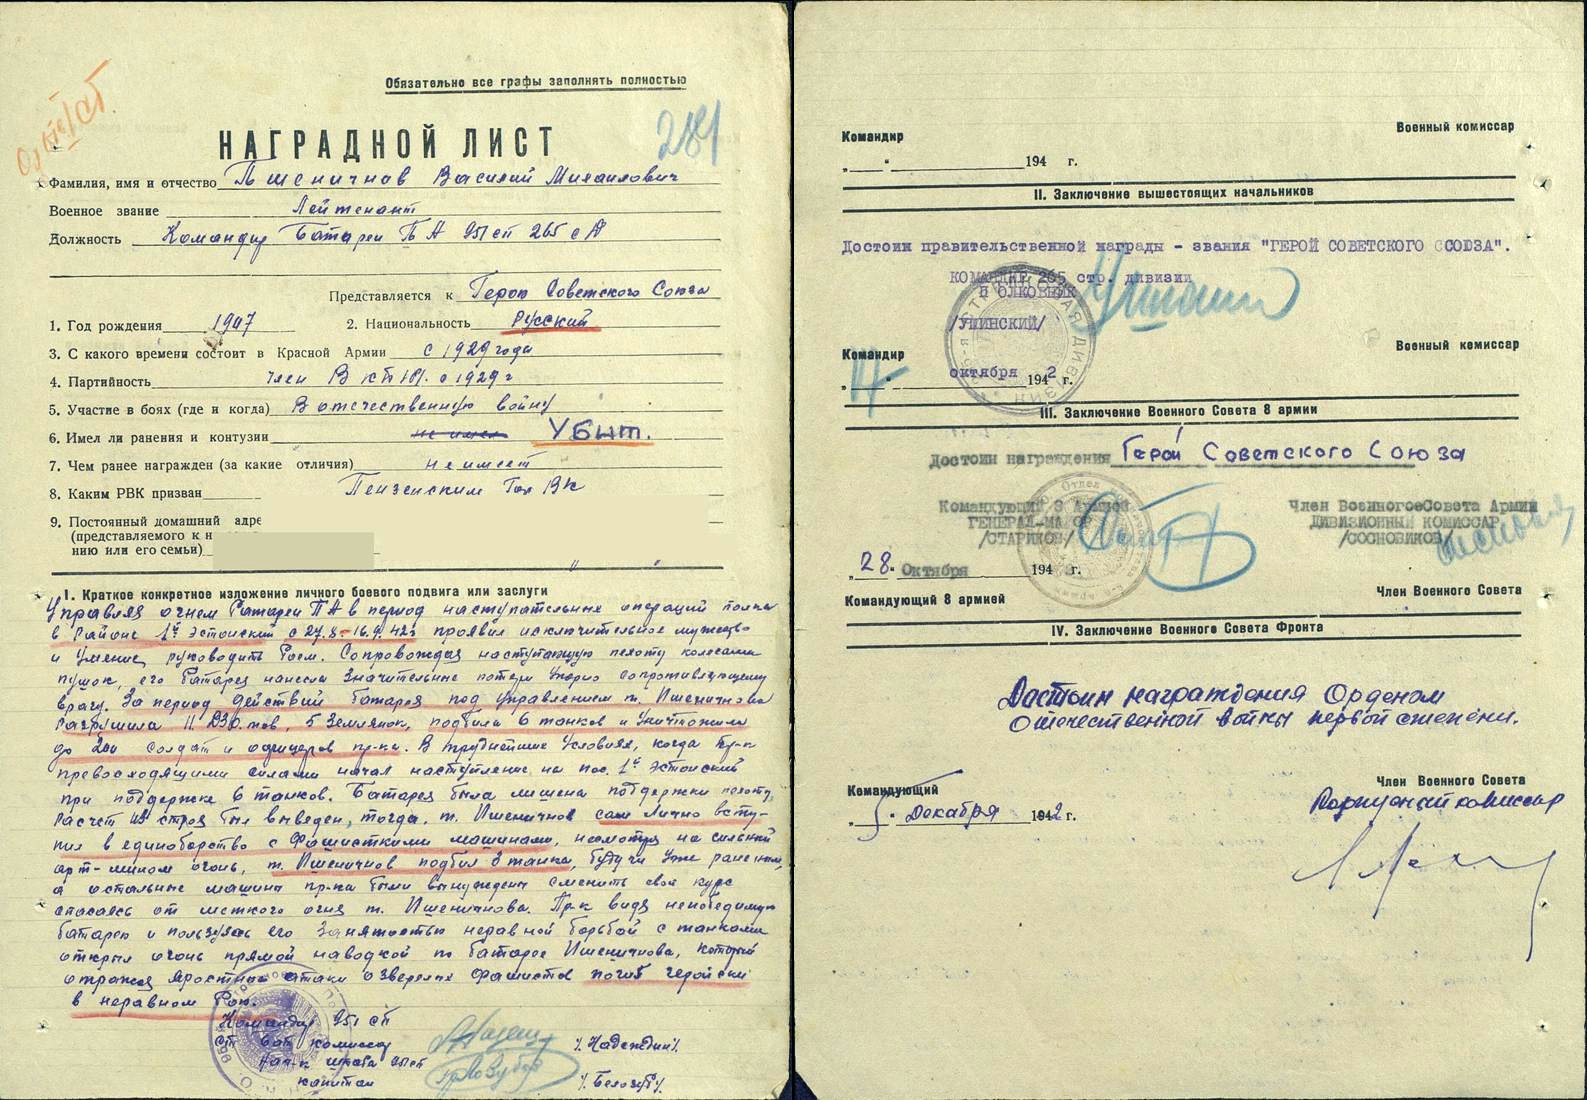 Обязательно все графы заполнять полностью
НАГРАДНОЙ ЛИСТ
Фамилия, имя и отчество Пшеничнов Василий Михайлович
Военное звание Лейтенант
Должность Командир Батареи ПА 951 сп 265 сд
Представляется к Герою Советского Союза
1. Год рождения 1907 2. Национальность Русский
3. С какого времени состоит в Красной Армии с 1929 года
4. Партийность член ВКП/б/ с 1929 г
5. Участие в боях (где и когда) В отечественную войну
6. Имел ли ранения и контузии не имел Убит.
7. Чем ранее награжден (за какие отличия) не имеет
8. Каким РВК призван Пензенским Гор ВК
9. Постоянный домашний адре
(представляемого к н
нию или его семьи)
I. Краткое конкретное изложение личного боевого подвига или заслуги
Управляя огнем Батареи ПА в период наступательных операций полка
в Районе 1й Эстонский с 27.8-16.9.42г проявил исключительное мужество
и умение руководить боем. Сопровождая наступающую пехоту колесами
пушок, его батарея нанесла значительные потери упорно сопротивляющемуся
врагу. За период действий батарея под управлением т. Пшеничнова
Разрушила 11 ДЗО.тов, 5 Землянок, подбила 6 танков и уничтожила
до 200 солдат и офицеров пр-ка. В труднейших условиях, когда пр-к
превосходящими силами начал наступление на пос. 1й Эстонский
при поддержке 6 танков. Батарея была лишена поддержки пехоты,
расчет из строя был выведен, тогда т. Пшеничнов сам лично всту-
пил в единоборство с фашисткими машинами, несмотря на сильный
арт-мином огонь, т. Пшеничнов подбил 3 танка, будучи уже раненым,
а остальные машины пр-ка были вынуждены сменить свой курс
спасаясь от меткого огня т. Пшеничнова. Пр-к видя непобедимую
батарею и пользуясь его занятостью неравной борьбой с танками
открыл огонь прямой наводкой по батарее Пшеничнова, который
отражая яростные атаки озверелых фашистов погиб геройски
в неравном бою.
Командир 951 сп
ст бат комиссар /Надеждин/.
Нач-к штаба 951 сп
капитан
Командир Военный комиссар
„ “ 194 г.
II. Заключение вышестоящих начальников
Достоин правительственной награды - звания "ГЕРОЙ СОВЕТСКОГО ССОЮЗА".
КОМАНДИР 265 стр. дивизии
ПОЛКОВНИК
/УШИНСКИЙ/
Командир Военный комиссар
„17“ октября 1942 г.
III. Заключение Военного Совета 8 армии
Достоин награждения Герой Советского Союза
Командующий 8 Армией Член ВоенногоСовета Армии
ГЕНЕРАЛ-МАЙОР ДИВИЗИОННЫЙ КОМИССАР
/СТАРИКОВ/ /СОСНОВИКОВ/
„28“ Октября 1942 г.
Командующий 8 армией Член Военного Совета
IV. Заключение Военного Совета Фронта
Достоин награждения Орденом
Отечественной войны первой степени.
Командующий Член Военного Совета
Корпусной комиссар
„5“ Декабря 1942 г.